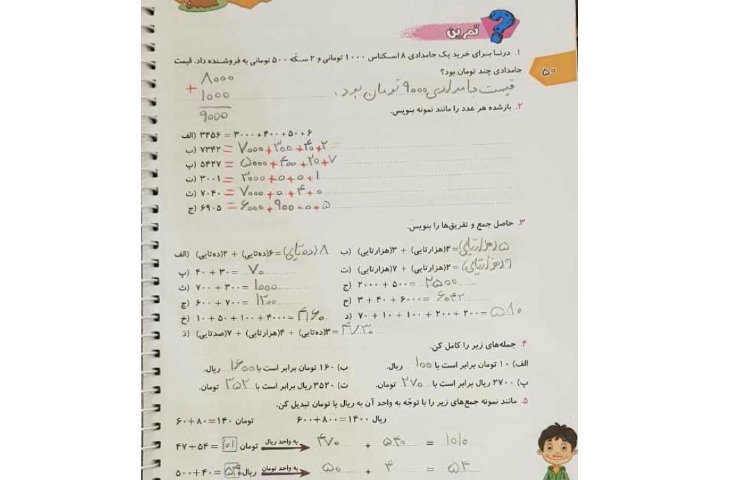 تمرین
۵۰
۱. درنا برای خرید یک جامدادی ۸ اسکناس ۱۰۰۰ تومانی و ۲ سکه ۵۰۰ تومانی به فروشنده داد. قیمت
جامدادی چند تومان بود؟
۸۰۰۰ + ۱۰۰۰ = ۹۰۰۰
قیمت جامدادی ۹۰۰۰ تومان بود.
۲. بازشده هر عدد را مانند نمونه بنویس.
الف) ۳۴۵۶ = ۳۰۰۰ + ۴۰۰ + ۵۰ + ۶
ب) ۷۳۴۲ = ۷۰۰۰ + ۳۰۰ + ۴۰ + ۲
پ) ۵۴۲۷ = ۵۰۰۰ + ۴۰۰ + ۲۰ + ۷
ت) ۳۰۰۱ = ۳۰۰۰ + ۰ + ۰ + ۱
ث) ۷۰۴۰ = ۷۰۰۰ + ۰ + ۴۰ + ۰
ج) ۶۹۰۵ = ۶۰۰۰ + ۹۰۰ + ۰ + ۵
۳. حاصل جمع و تفریق‌ها را بنویس.
الف) ۲(ده‌تایی) + ۶(ده‌تایی) = ۸(ده‌تایی)
ب) ۳(هزارتایی) + ۲(هزارتایی) = ۵(هزارتایی)
پ) ۴۰ + ۳۰ = ۷۰
ت) ۷(هزارتایی) + ۲(هزارتایی) = ۹(هزارتایی)
ث) ۷۰۰ + ۳۰۰ = ۱۰۰۰
ج) ۲۰۰۰ + ۵۰۰ = ۲۵۰۰
چ) ۶۰۰ + ۷۰۰ = ۱۳۰۰
ح) ۳ + ۴۰ + ۶۰۰۰ = ۶۰۴۳
خ) ۱۰ + ۵۰ + ۱۰۰ + ۴۰۰۰ = ۴۱۶۰
د) ۷۰ + ۱۰ + ۱۰۰ + ۲۰۰ + ۲۰۰ = ۵۸۰
ذ) ۷(صدتایی) + ۴(هزارتایی) + ۳(ده‌تایی) = ۴۷۳۰
۴. جمله‌های زیر را کامل کن.
الف) ۱۰ تومان برابر است با ۱۰۰ ریال.
ب) ۱۶۰ تومان برابر است با ۱۶۰۰ ریال.
پ) ۲۷۰۰ ریال برابر است با ۲۷۰ تومان.
ت) ۳۵۲۰ ریال برابر است با ۳۵۲ تومان.
۵. مانند نمونه جمع‌های زیر را با توجّه به واحد آن به ریال یا تومان تبدیل کن.
۶۰ + ۸۰ = ۱۴۰ تومان
۶۰۰ + ۸۰۰ = ۱۴۰۰ ریال
۴۷ + ۵۴ = ۱۰۱ تومان به واحد ریال ۴۷۰ + ۵۴۰ = ۱۰۱۰
۵۰۰ + ۴۰ = ۵۴۰ ریال به واحد تومان ۵۰ + ۴ = ۵۴